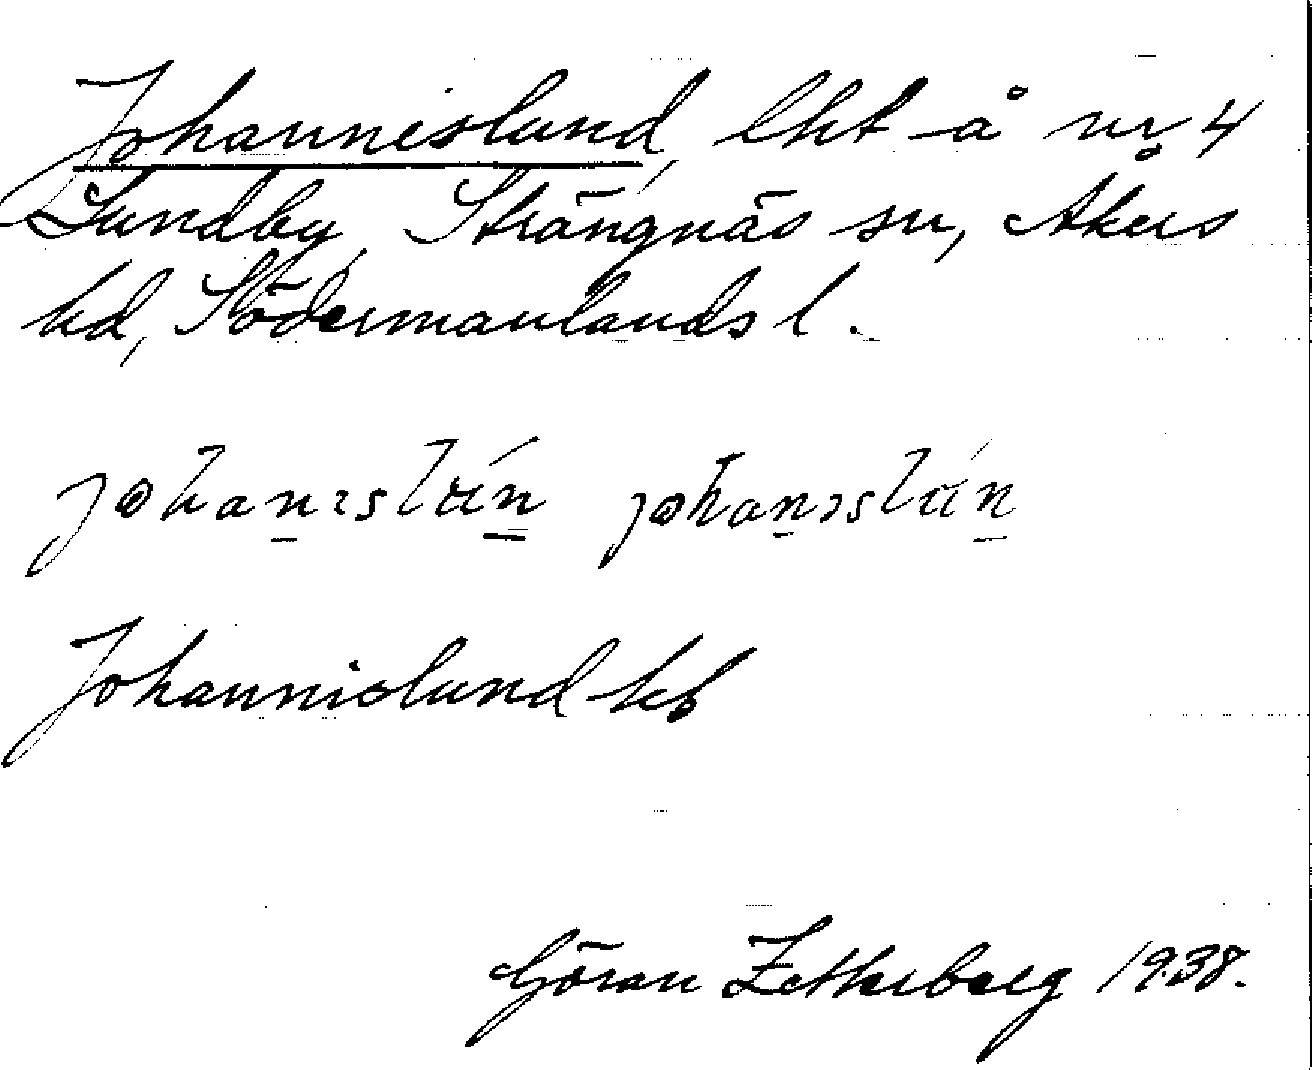 Johannislund, lht å nr 4
Lundby, Strängnäs sn, Åkers
hd, Södermanlands l.
johanıslún johanıslún
Johannislund kb
Göran Zetterberg 1938.